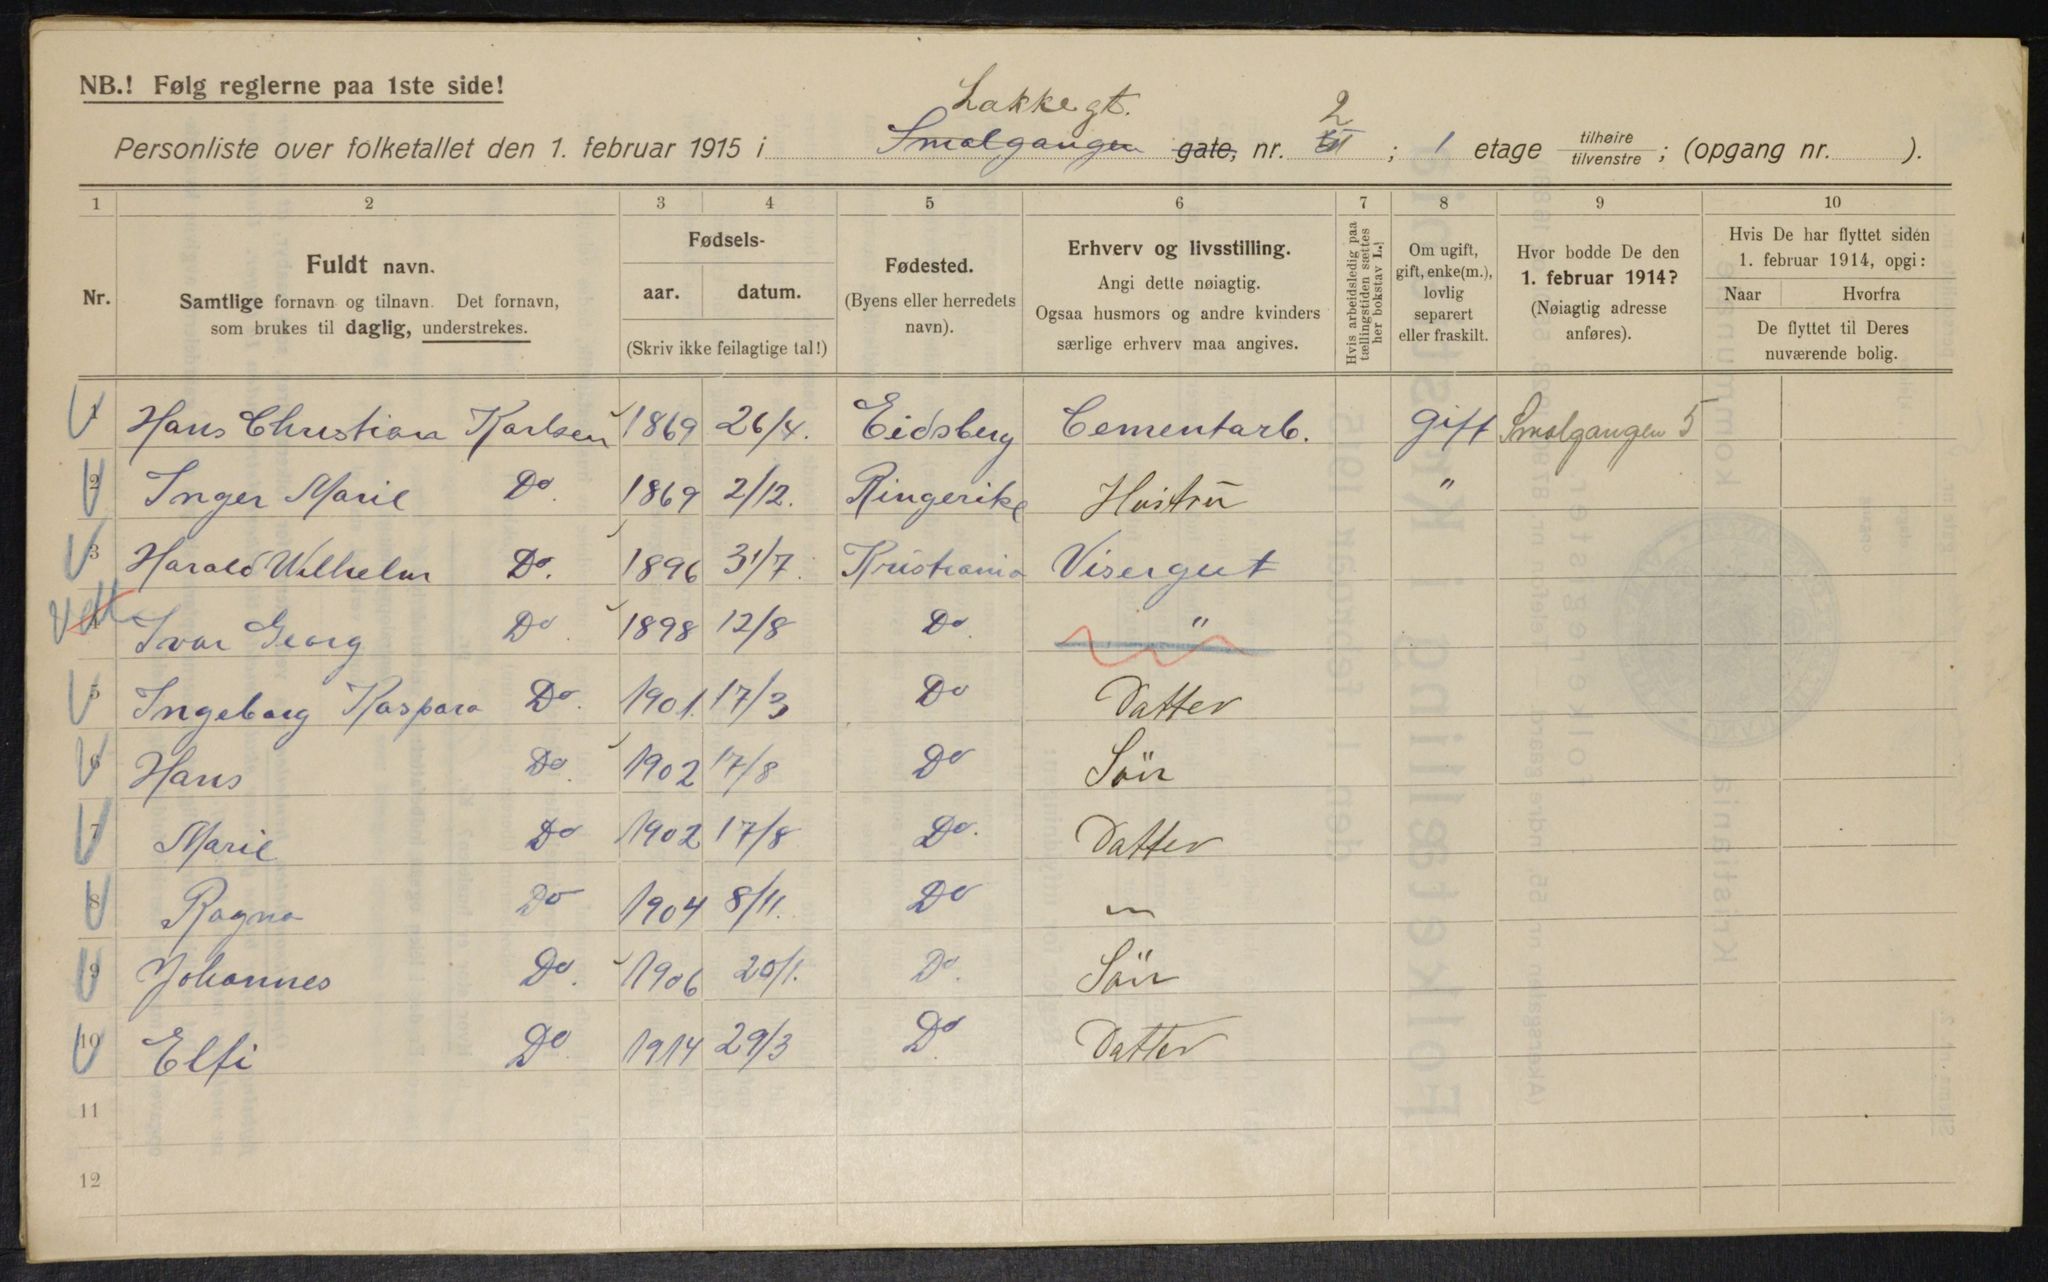 NB.! Følg reglerne paa 1ste side!
Lakkegt. 2
Personliste over folketallet den 1. februar 1915 i Smalgangen gate, nr. ; 1 etage tilhøire tilvenstre ; (opgang nr. ).
1 2 3 4 5 6 7 8 9 10
Nr.
Fuldt navn.
Samtlige fornavn og tilnavn. Det fornavn,
som brukes til daglig, understrekes.
Fødsels-
aar. datum.
(Skriv ikke feilagtige tal!)
Fødested.
(Byens eller herredets
navn).
Erhverv og livsstilling.
Angi dette nøiagtig.
Ogsaa husmors og andre kvinders
særlige erhverv maa angives.
Hvis arbeidsledig paa
tællingstiden sættes
her bokstav L.!
Om ugift,
gift, enke(m.),
lovlig
separert
eller fraskilt.
Hvor bodde De den
1. februar 1914?
(Nøiagtig adresse
anføres).
Hvis De har flyttet siden
1. februar 1914, opgi:
Naar Hvorfra
De flyttet til Deres
nuværende bolig.
1 Hans Christian Karlsen 1869 26/4. Eidsberg Cementarb. gift Smalgangen 5
2 Inger Marie Do. 1869 2/12. Ringerike Hustru "
3 Harald Wilhelm Do. 1896 31/7. Kristiania Visergut
4 Ivar Georg Do. 1898 12/8 Do. "
5 Ingeborg Kaspara Do. 1901. 17/3 Do Datter
6 Hans Do. 1902 17/8 Do Sön
7 Marie Do 1902 17/8 Do. Datter
8 Ragna Do 1904 8/11. Do "
9 Johannes Do. 1906 20/1. Do. Sön
10 Elfi Do. 1914 29/3 Do. Datter
11
12